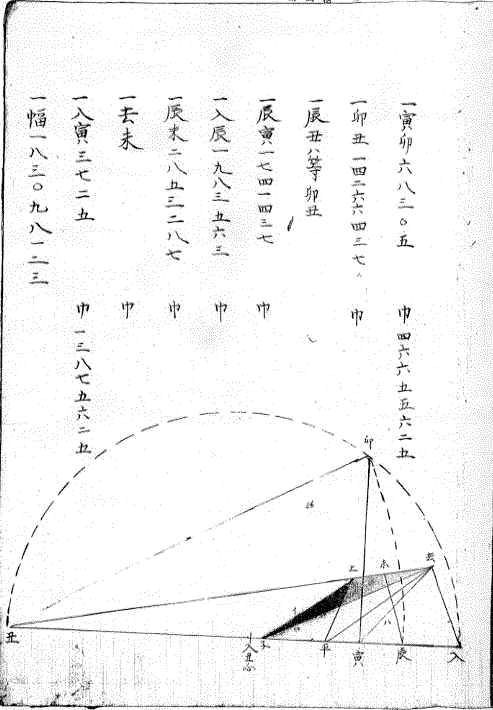 一寅卯六八三〇五　巾四六六五五六二五
一卯丑一四二六六四三七　巾
一辰丑ハ等卯丑
一辰寅一七四一四三七　巾
一入辰一九八三五六三　巾
一辰未二八五三二八七　巾
一去未　巾
一入寅三七二五　巾一三八七五六二五
一幅一八三〇九八一二三
卯
去
未
上
入
辰
寅
平
子
丑